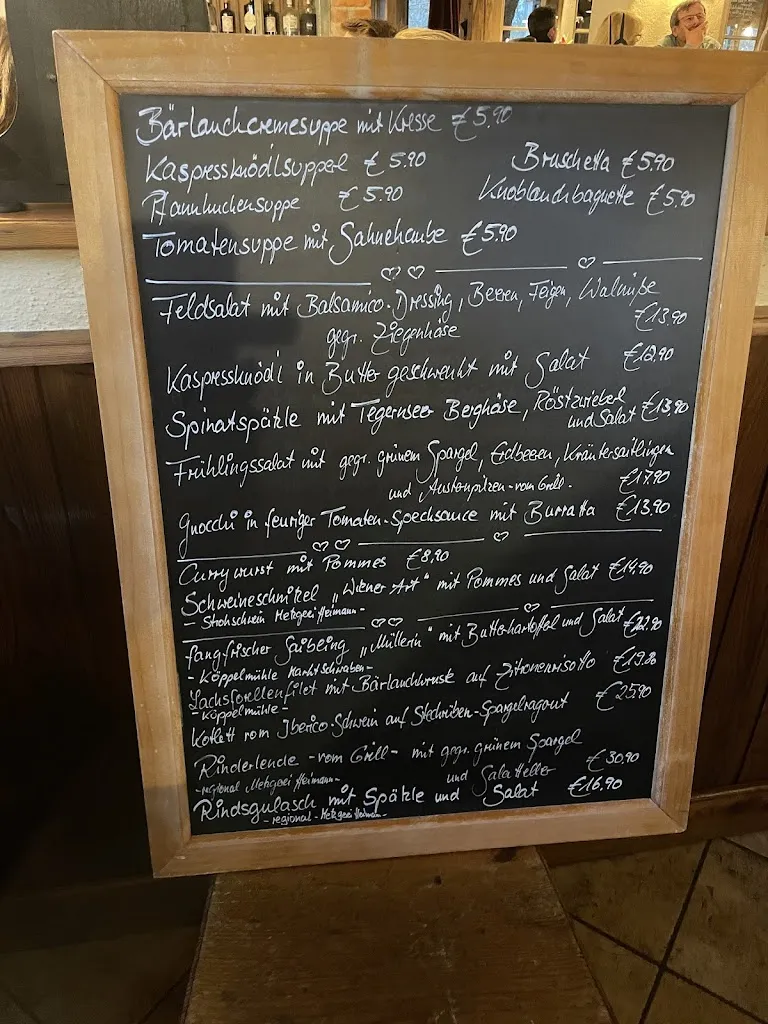 Bärlauchcremesuppe mit Kresse €5.90
Kaspressknödlsupperl €5.90
Bruschetta €5.90
Pfannkuchensuppe €5.90
Knoblauchbaguette €5.90
Tomatensuppe mit Sahnehaube €5.90
Feldsalat mit Balsamico-Dressing, Beeren, Feigen, Walnüße
gegr. Ziegenkäse €13.90
Kaspressknödl in Butter geschwenkt mit Salat €12.90
Spinatspätzle mit Tegernseer Bergkäse, Röstzwiebel
und Salat €13.90
Frühlingssalat mit gegr. grünem Spargel, Erdbeeren, Kräutersaitlingen
und Austernpilzen - vom Grill. €17.90
Gnocchi in feuriger Tomaten-Specksauce mit Burratta €13.90
Currywurst mit Pommes €8.90
Schweineschnitzel „Wiener Art" mit Pommes und Salat €14.90
- Strohschwein Metzgerei Heimann -
fangfrischer Saibling „Müllerin" mit Butterkartoffel und Salat €22.90
- Köppelmühle Markt Schwaben -
Lachsforellenfilet mit Bärlauchkruste auf Zitronenrisotto €19.80
- Köppelmühle -
Kotlett vom Iberico-Schwein auf Stechrüben-Spargelragout €25.90
Rinderlende - vom Grill - mit gegr. grünem Spargel
- regional Metzgerei Heimann -
und Salatteller €30.90
Rindsgulasch mit Spätzle und Salat €16.90
- regional - Metzgerei Heimann -